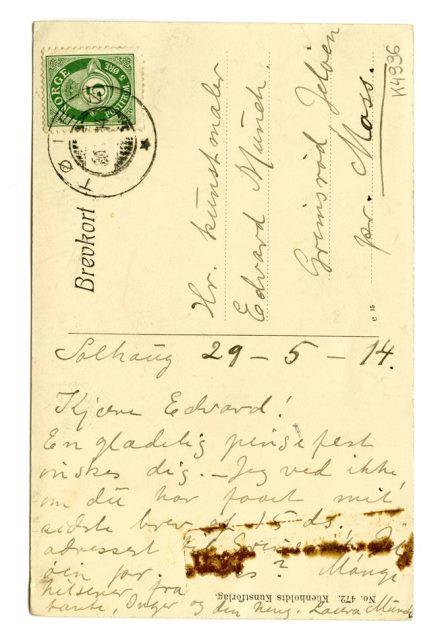 K4936
NORGE
5 ØRE
5
Brevkort
Hr. kunstmaler
Edvard Munch.
Grimsrød Jeløen
pr. Moss.
C 15
Solhaug 29 – 5 – 14.
Kjære Edvard!
En glædelig pinsefest
ønskes dig. – Jeg ved ikke
om du har faaet mit
sidste brev af 15 ds.
adressert
øen pr. ? Mange
hilsener fra
tante, Inger og din heng. Laura Munch
No. 472. Küenholdts Kunstforlag.